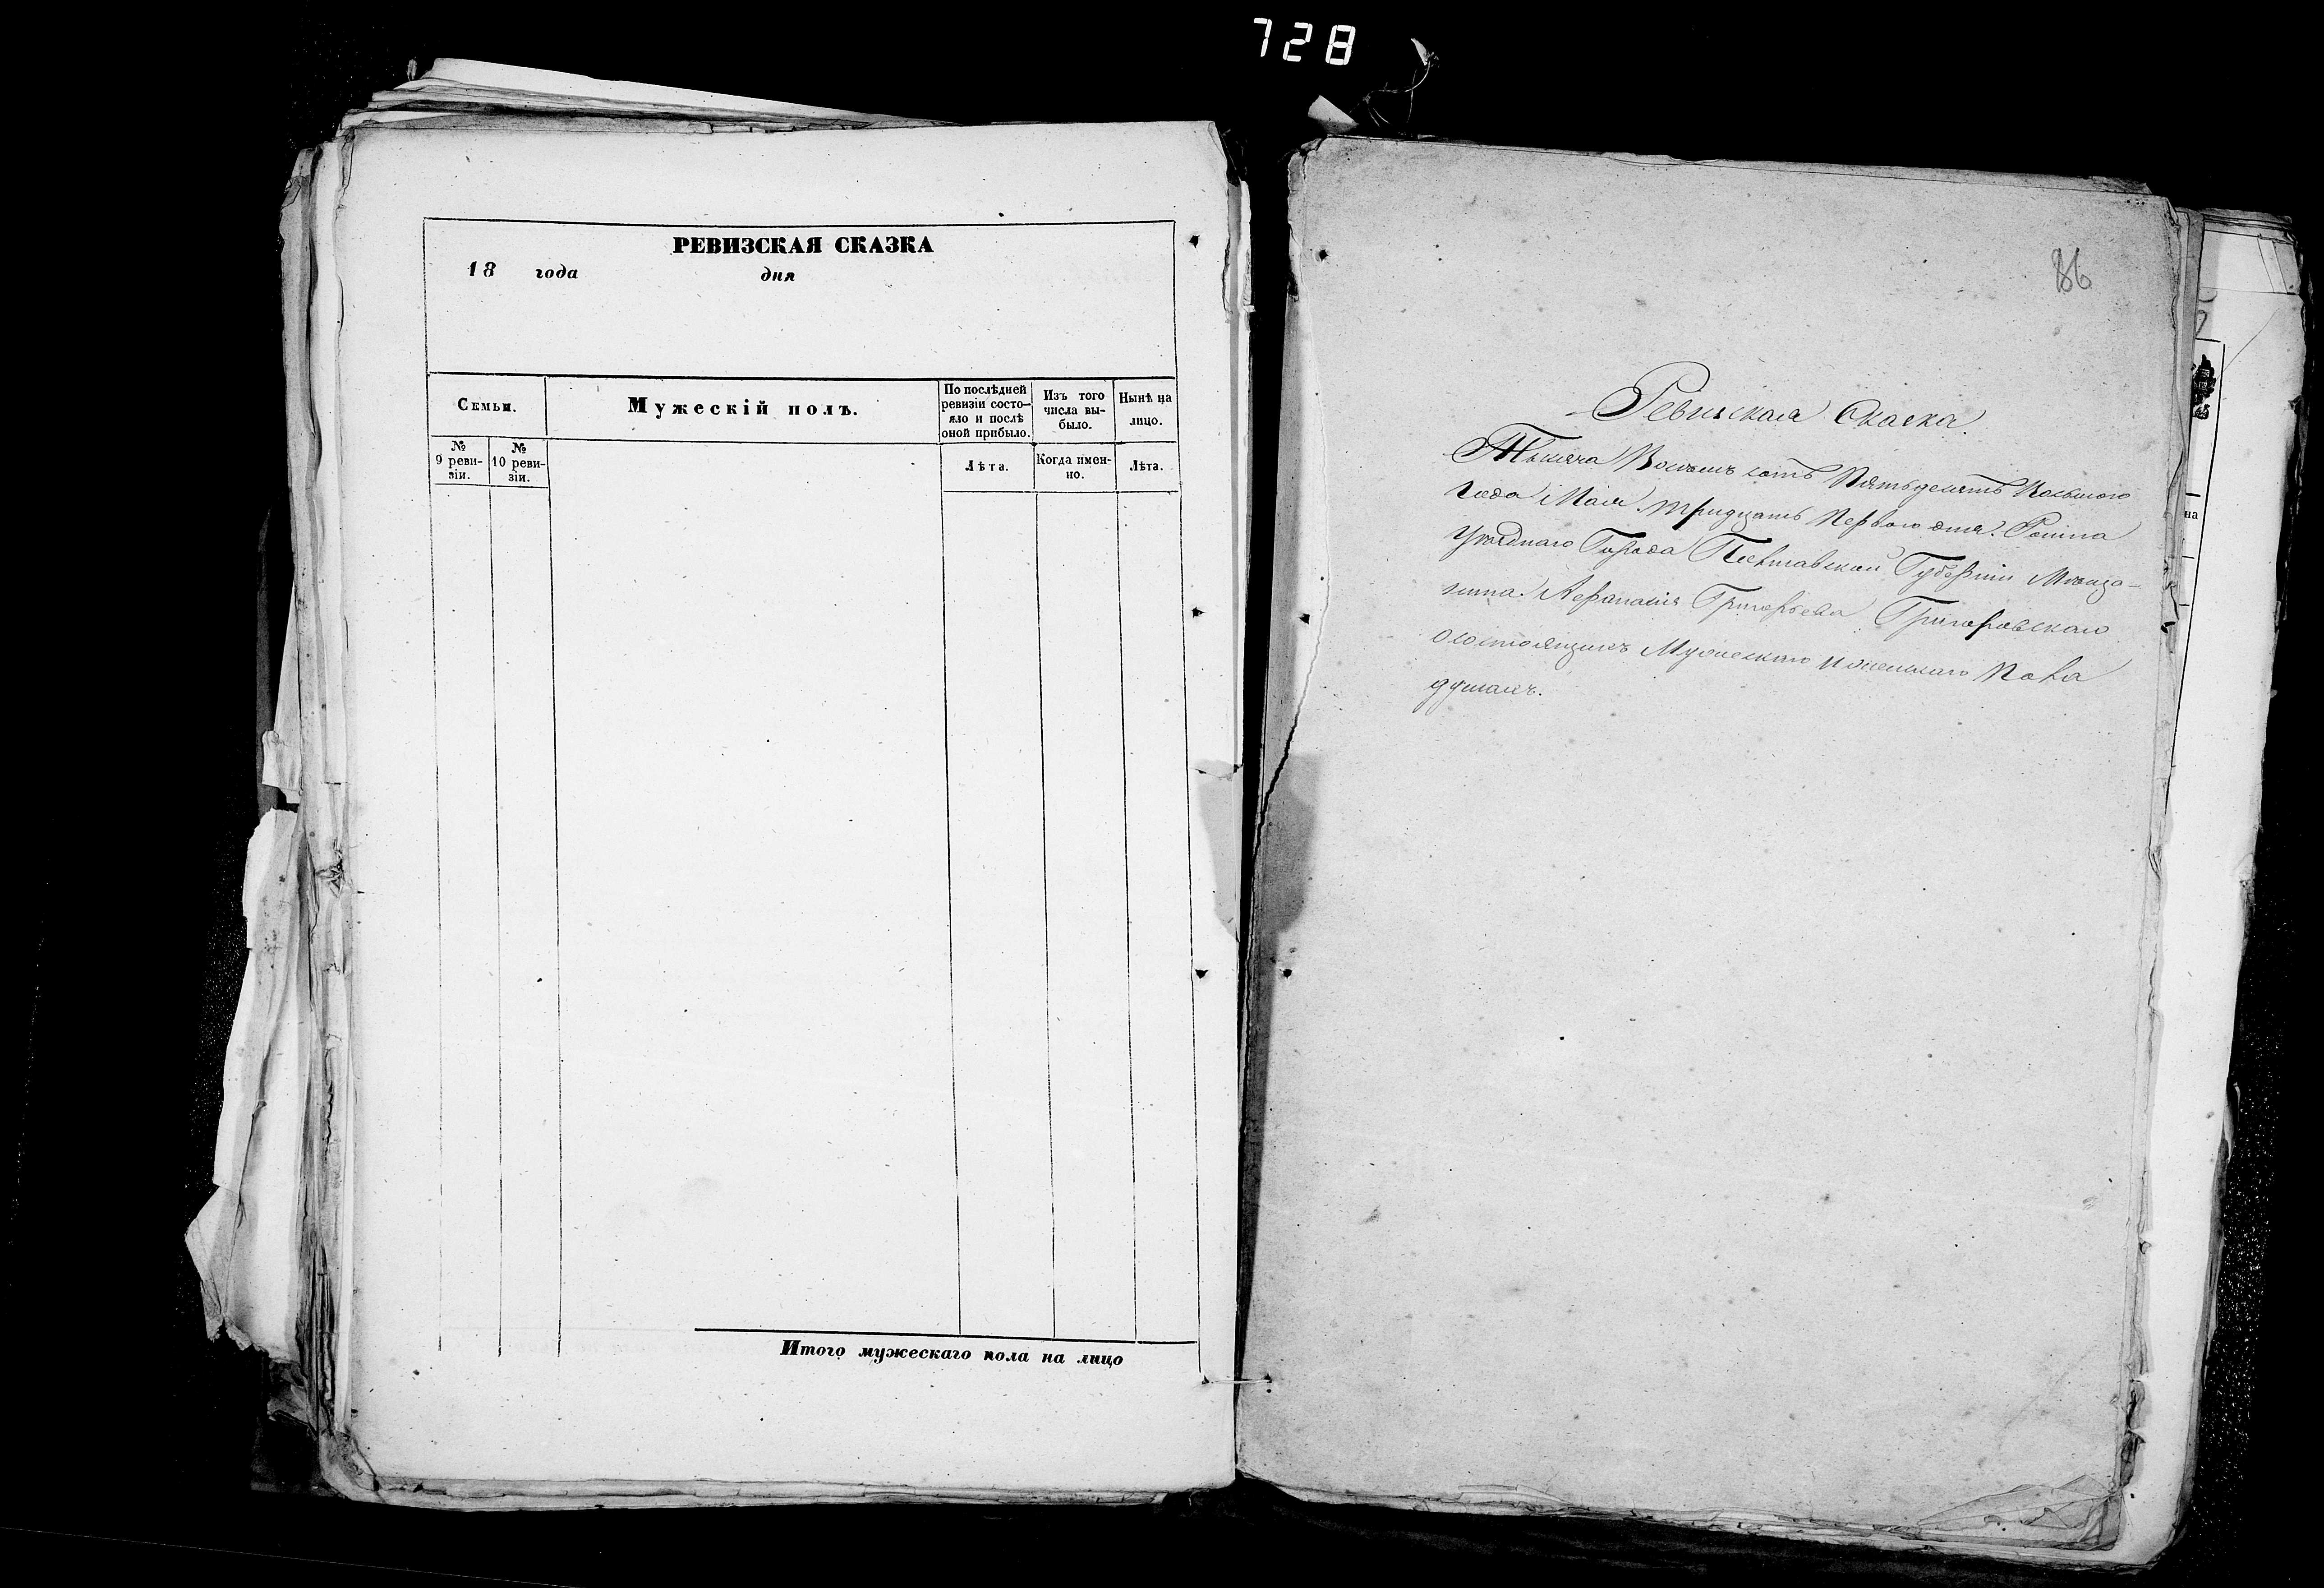 728
РЕВИЗСКАЯ СКАЗКА
18 года дня
Семьи.
Мужескій полъ.
По послѣдней ревизіи состо-
яло и послѣ оной прибыло.
Изъ того числа вы-
было.
Нынѣ на лицо.
№ 9 реви-
зіи.
№ 10 реви-
зіи.
Лѣта.
Когда имен-
но.
Лѣта.
Итого мужескаго пола на лицо
86
Ревизская Сказка.
Тысяча Восемь сотъ Пятьдесятъ Восьмого
года Мая тридцать Перваго дня. Ромна
Уѣзднаго Города Полтавской Губерніи Мѣща-
нина Афанасія Григорьева Григоровскаго
о состоящихъ Мужескаго и женскаго Пола
душахъ.
на